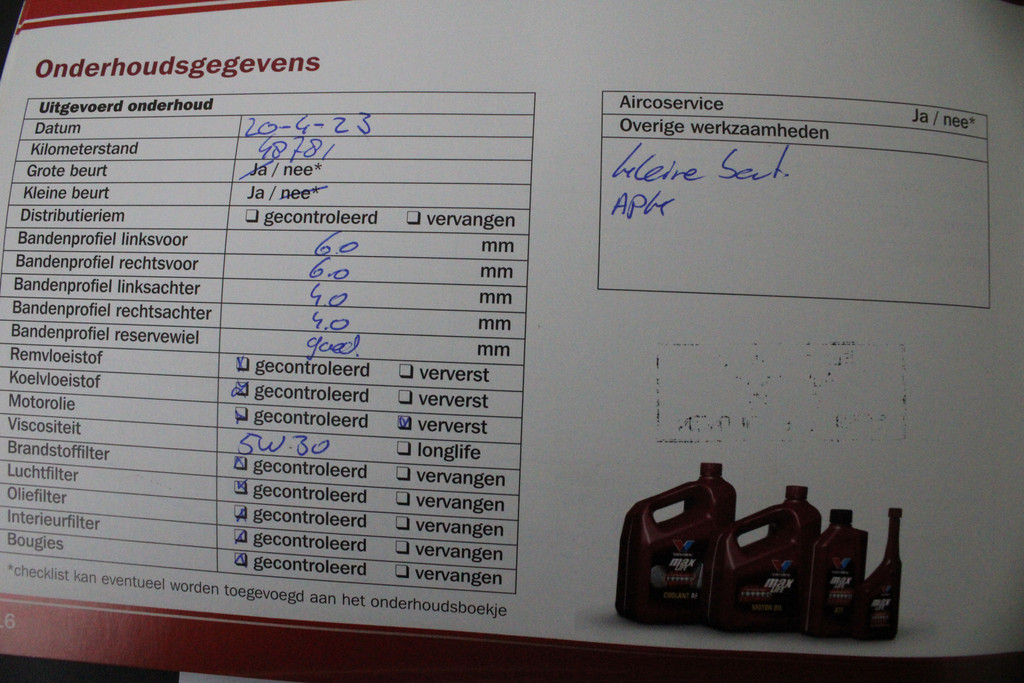 Onderhoudsgegevens
Uitgevoerd onderhoud
Datum 20-4-23
Kilometerstand 48781
Grote beurt Ja / nee*
Kleine beurt Ja / nee*
Distributieriem ❑ gecontroleerd ❑ vervangen
Bandenprofiel linksvoor 6.0 mm
Bandenprofiel rechtsvoor 6.0 mm
Bandenprofiel linksachter 4.0 mm
Bandenprofiel rechtsachter 4.0 mm
Bandenprofiel reservewiel goed. mm
Remvloeistof gecontroleerd ❑ ververst
Koelvloeistof gecontroleerd ❑ ververst
Motorolie gecontroleerd ververst
Viscositeit 5W-30 ❑ longlife
Brandstoffilter gecontroleerd ❑ vervangen
Luchtfilter gecontroleerd ❑ vervangen
Oliefilter gecontroleerd ❑ vervangen
Interieurfilter gecontroleerd ❑ vervangen
Bougies gecontroleerd ❑ vervangen
*checklist kan eventueel worden toegevoegd aan het onderhoudsboekje
Aircoservice Ja / nee*
Overige werkzaamheden
kleine beurt.
APK
MAX LIFE
COOLANT
MAX LIFE
MOTOR OIL
MAX LIFE
ATF
MAX